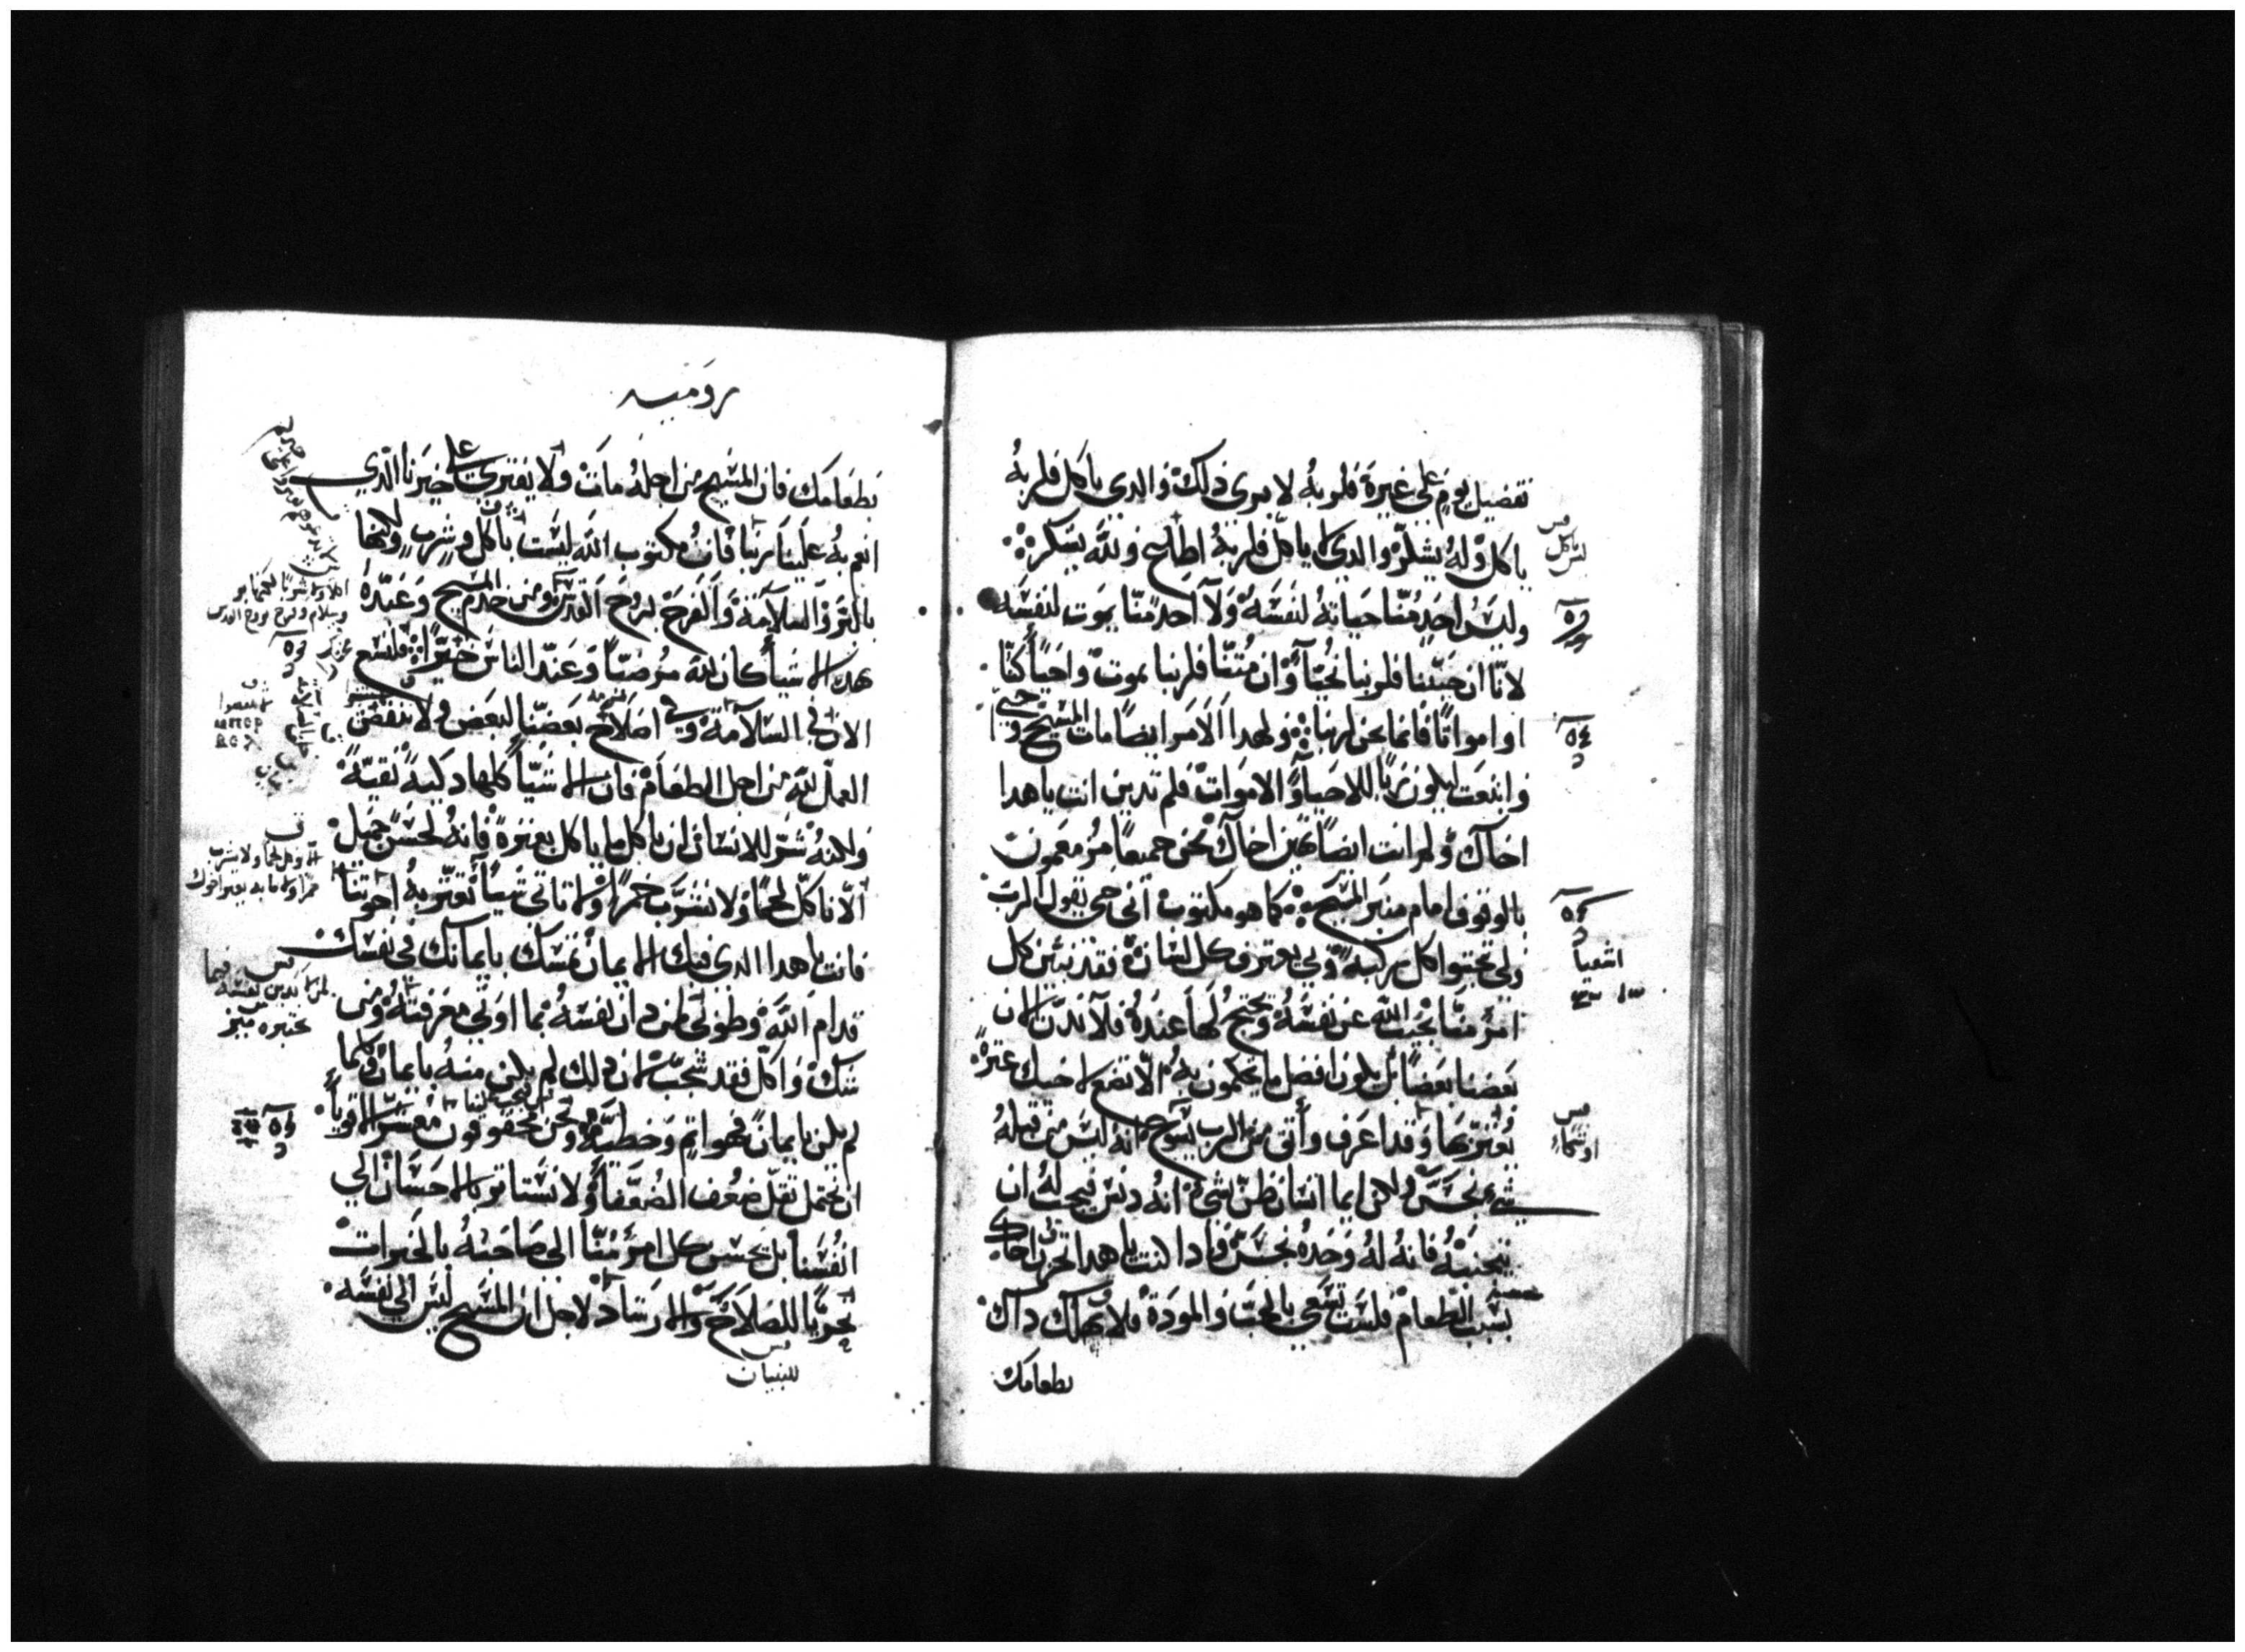 تفضيل يوم على غيره فلربه لا يرى ذلك والدي ياكل فلربه
ياكل وله يشكر والدي لا ياكل فلربه اطاع ولله يشكر
وليس احد منا حياته لنفسه ولا احد منا يموت لنفسه
لانا ان حيينا فلربنا نحيا وان متنا فلربنا نموت واحياً كنا
او امواتاً فانما نحن لربنا ولهدا الامر ايضاً مات المسيح وحيي
وانبعت ليكون رباً للاحيا والاموات فلم تدين انت ياهدا
اخاك ولم انت ايضاً تهين اخاك نحن جميعاً مزمعون
بالوقوف امام منبر المسيح كما هو مكتوب اني حي يقول الرب
ولي تجتوا كل ركبة ولي يعترف كل لسان فقد تبين كل
امرء منا يجيب الله عن نفسه ويحتج لها عنده فلا ندن الان
بعضنا بعضاً بل يكون افضل ما تحكمون به الا تضع لاخيك عترة
تعتره بها وقد اعرف واتق من الرب يسوع انه ليس من قبله
شيء نجس ولكن ايما انسان ظن بشي انه دنس فيجب له ان
يتجنبه فانه له وحده نجس فادا كنت ياهدا تحزن اخاك
بسبب الطعام فلست تسعى بالحب والمودة فلا تهلك داك
بطعامك
ليس ياكل
٥٤
اشعيا
رومية
بطعامك فان المسيح من اجله مات ولا يفترى على خيرنا الدي
انعم به علينا ربنا فان مكتوب الله ليست باكل وشرب ولكنها
بالبر والسلامة والفرح بروح القدس ومن خدم المسيح وعبده
بهده الاشيا كان لله مرضياً وعند الناس خيراً فلنسع
الان في السلامة وفي اصلاح بعضنا لبعض ولا ننقض
العمل لله من اجل الطعام فان الاشيا كلها دكية نقية
ولكنه شر للانسان ان ياكل ما ياكل بعترة فانه لحسن جميل
الا ناكل لحماً ولا نشرب خمراً ولا ناتي شيا تعتر به اخوتنا
فانت ياهدا الدي فيك الايمان تمسك بايمانك في نفسك
قدام الله وطوبى لمن دان نفسه فيما اوتي معرفته ومن
شك واكل فقد شجب لان دلك لم يكن منه بايمان وكلما
لم يكن بايمان فهو اتم وخطية ونحن محقوقون معشر الاقويا
ان نحتمل تقل ضعف الضعفا ولا نستاتر بالاحسان الى
انفسنا بل يحسن كل امرء منا الى صاحبه بالخيرات
تحرياً للصلاح والارشاد لاجل ان المسيح ليس الى نفسه
للبنيان